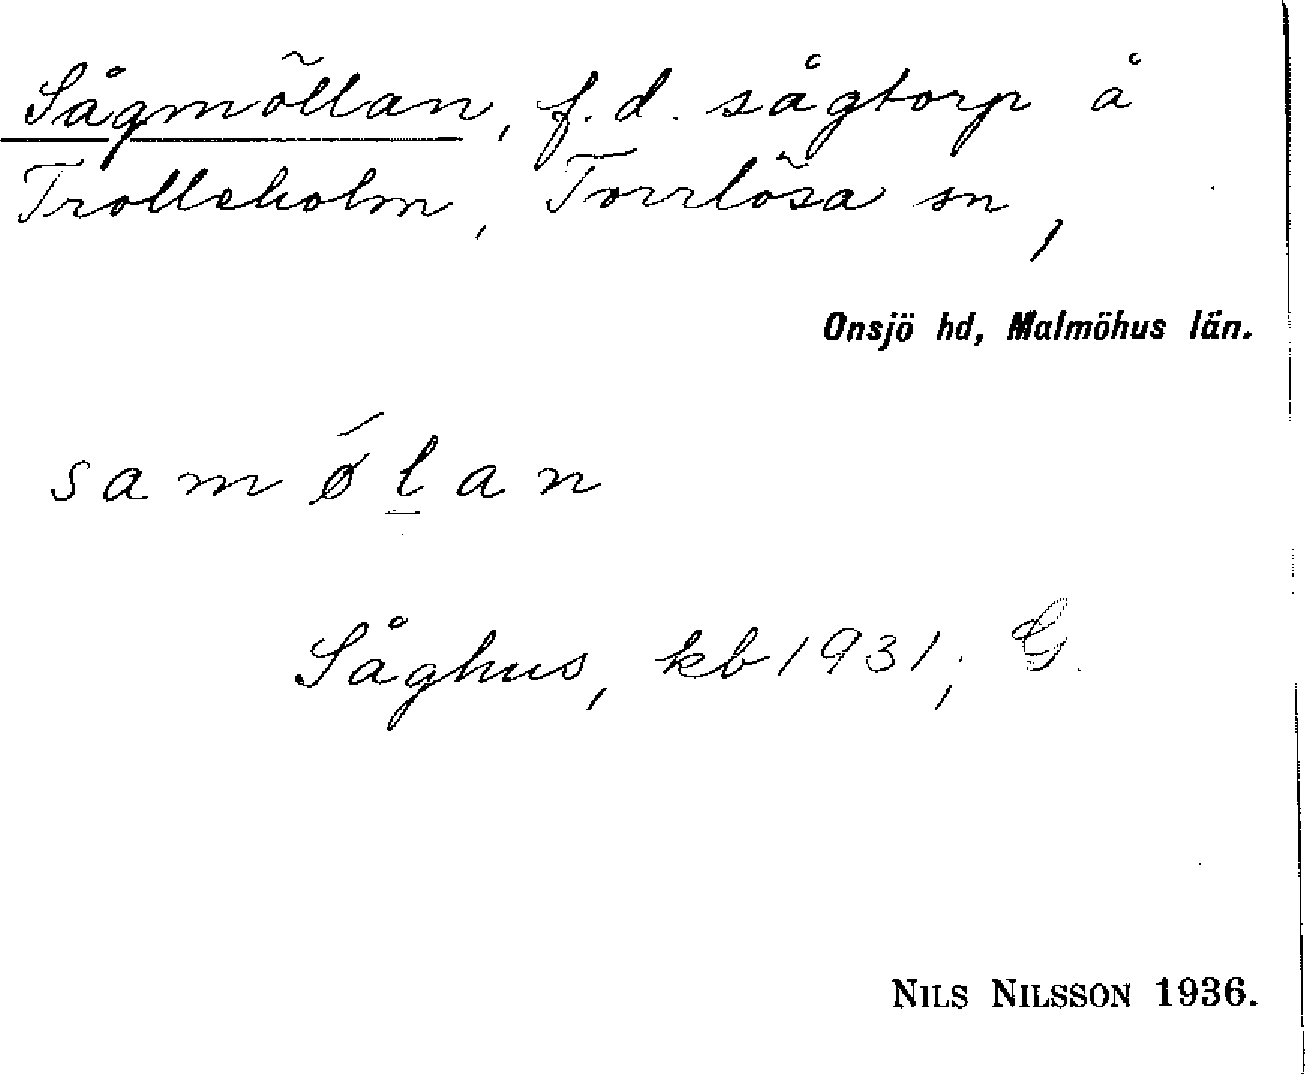 Sågmöllan, f.d. sågtorp å
Trolleholm, Torrlösa sn,
Onsjö hd, Malmöhus län.
samǿlan
Såghus, kb 1931; G.
NILS NILSSON 1936.